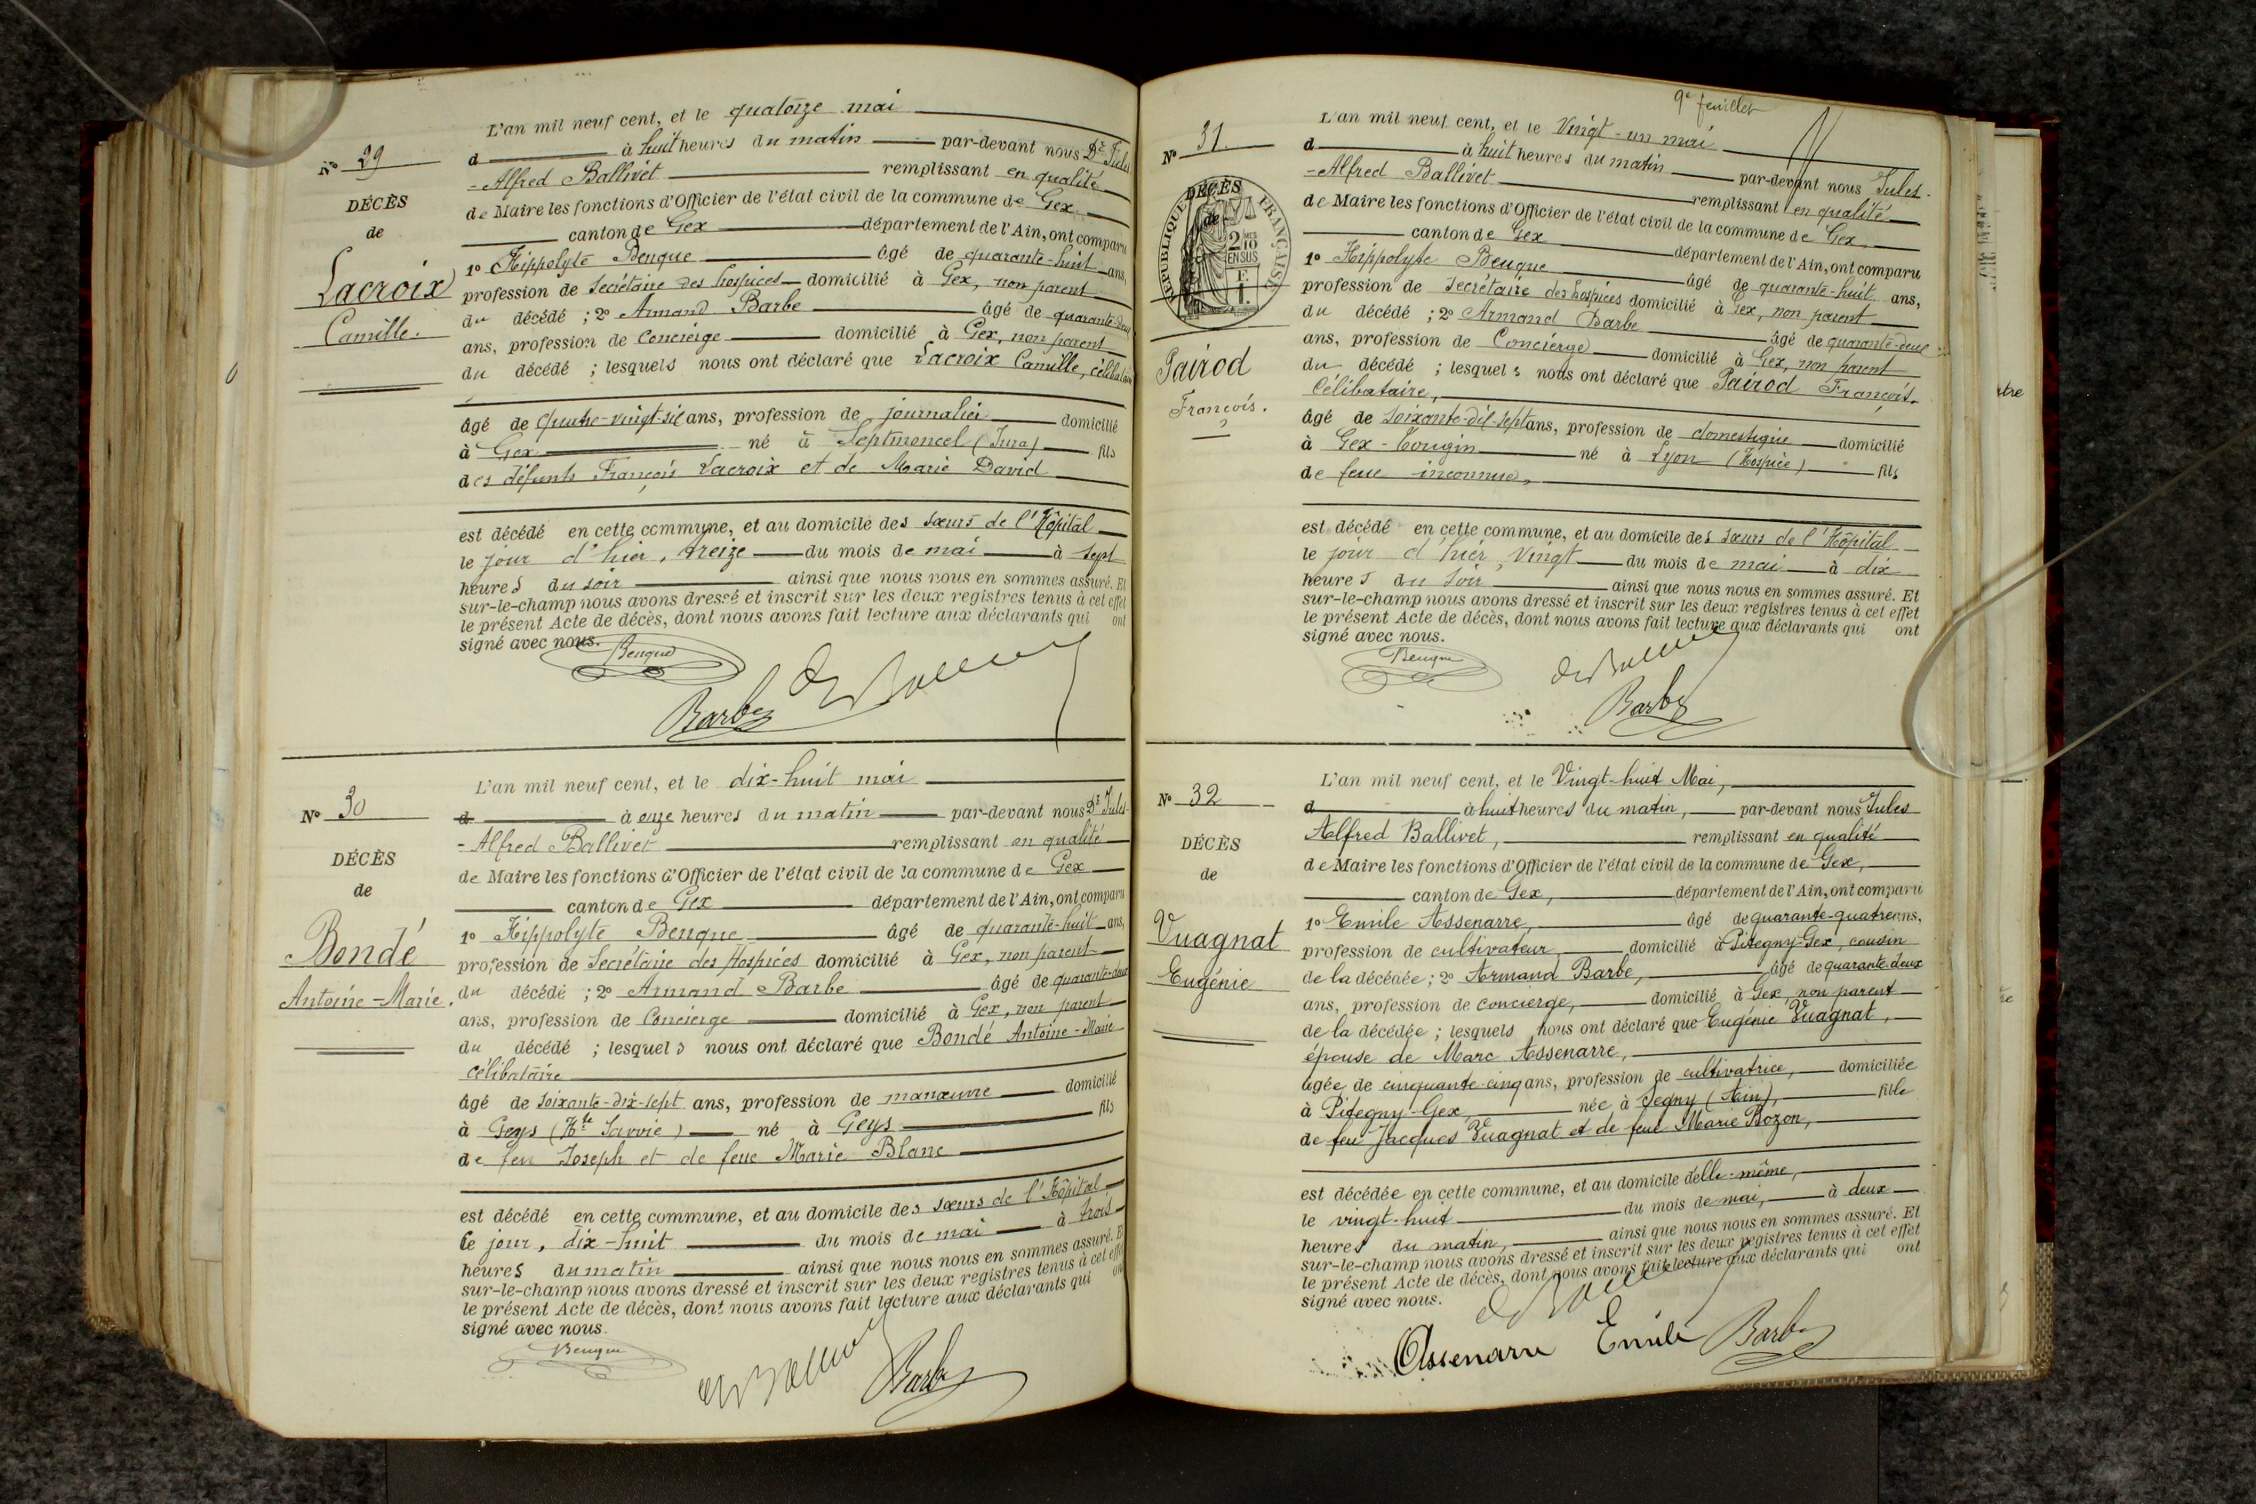 L'an mil neuf cent, et le quatorze mai
Nº 29
d à huit heures du matin par-devant nous Dr Jules
-Alfred Ballivet remplissant en qualité
DÉCÈS
de Maire les fonctions d'Officier de l'état civil de la commune de Gex
de
canton de Gex département de l'Ain, ont comparu
1º Hippolyte Benque âgé de quarante-huit ans,
Lacroix
profession de Secrétaire des hospices domicilié à Gex, non parent
Camille.
du décédé ; 2º Armand Barbe âgé de quarante-deux
ans, profession de Concierge domicilié à Gex, non parent
du décédé ; lesquels nous ont déclaré que Lacroix Camille, célibataire
âgé de quatre-vingt-six ans, profession de journalier domicilié
à Gex né à Septmoncel (Jura) fils
des défunts François Lacroix et de Marie David
est décédé en cette commune, et au domicile des sœurs de l'Hôpital
le jour d'hier, treize du mois de mai à sept
heures du soir ainsi que nous nous en sommes assuré. Et
sur-le-champ nous avons dressé et inscrit sur les deux registres tenus à cet effet
le présent Acte de décès, dont nous avons fait lecture aux déclarants qui ont
signé avec nous.
Benque
Barbe
L'an mil neuf cent, et le dix-huit mai
Nº 30
d à onze heures du matin par-devant nous Dr Jules
-Alfred Ballivet remplissant en qualité
DÉCÈS
de Maire les fonctions d'Officier de l'état civil de la commune de Gex
de
canton de Gex département de l'Ain, ont comparu
1º Hippolyte Benque âgé de quarante-huit ans,
Bondé
profession de Secrétaire des Hospices domicilié à Gex, non parent
Antoine-Marie.
du décédé ; 2º Armand Barbe âgé de quarante-deux
ans, profession de Concierge domicilié à Gex, non parent
du décédé ; lesquels nous ont déclaré que Bondé Antoine-Marie
célibataire
âgé de soixante-dix-sept ans, profession de manœuvre domicilié
à Geys (Hte Savoie) né à Geys fils
de feu Joseph et de feue Marie Blanc
est décédé en cette commune, et au domicile des sœurs de l'Hôpital
Ce jour, dix-huit du mois de mai à trois
heures du matin ainsi que nous nous en sommes assuré. Et
sur-le-champ nous avons dressé et inscrit sur les deux registres tenus à cet effet
le présent Acte de décès, dont nous avons fait lecture aux déclarants qui ont
signé avec nous.
Benque
Barbe
9e feuillet
L'an mil neuf cent, et le Vingt-un mai
Nº 31.
d à huit heures du matin par-devant nous Jules-
-Alfred Ballivet remplissant en qualité
DÉCÈS
de
RÉPUBLIQUE FRANÇAISE
2/10 EN SUS
de Maire les fonctions d'Officier de l'état civil de la commune de Gex
canton de Gex département de l'Ain, ont comparu
1º Hippolyte Benque âgé de quarante-huit ans,
profession de Secrétaire des hospices domicilié à Gex, non parent
du décédé ; 2º Armand Barbe âgé de quarante-deux
ans, profession de Concierge domicilié à Gex, non parent
Pairod
François.
du décédé ; lesquels nous ont déclaré que Pairod François.
Célibataire,
âgé de soixante-dix-sept ans, profession de domestique domicilié
à Gex-Tougin né à Lyon (Hospice) fils
de feue inconnue,
est décédé en cette commune, et au domicile des sœurs de l'Hôpital
le jour d'hier, vingt du mois de mai à dix
heures du Soir ainsi que nous nous en sommes assuré. Et
sur-le-champ nous avons dressé et inscrit sur les deux registres tenus à cet effet
le présent Acte de décès, dont nous avons fait lecture aux déclarants qui ont
signé avec nous.
Benque
Barbe
L'an mil neuf cent, et le Vingt-huit Mai,
Nº 32
d à huit heures du matin, par-devant nous Jules
Alfred Ballivet, remplissant en qualité
DÉCÈS
de Maire les fonctions d'Officier de l'état civil de la commune de Gex,
de
canton de Gex, département de l'Ain, ont comparu
1º Emile Assenarre, âgé de quarante-quatre ans,
Vuagnat
profession de cultivateur, domicilié à Pitegny-Gex, cousin
Eugénie
de la décédée ; 2º Armand Barbe, âgé de quarante-deux
ans, profession de concierge, domicilié à Gex, non parent
de la décédée ; lesquels nous ont déclaré que Eugénie Vuagnat,
épouse de Marc Assenarre,
âgée de cinquante-cinq ans, profession de cultivatrice, domiciliée
à Pitegny-Gex, née à Segny (Ain), fille
de feu Jacques Vuagnat et de feue Marie Bozon,
est décédée en cette commune, et au domicile d'elle-même,
le vingt-huit du mois de mai, à deux
heures du matin, ainsi que nous nous en sommes assuré. Et
sur-le-champ nous avons dressé et inscrit sur les deux registres tenus à cet effet
le présent Acte de décès, dont nous avons fait lecture aux déclarants qui ont
signé avec nous.
Assenarre Emile Barbe